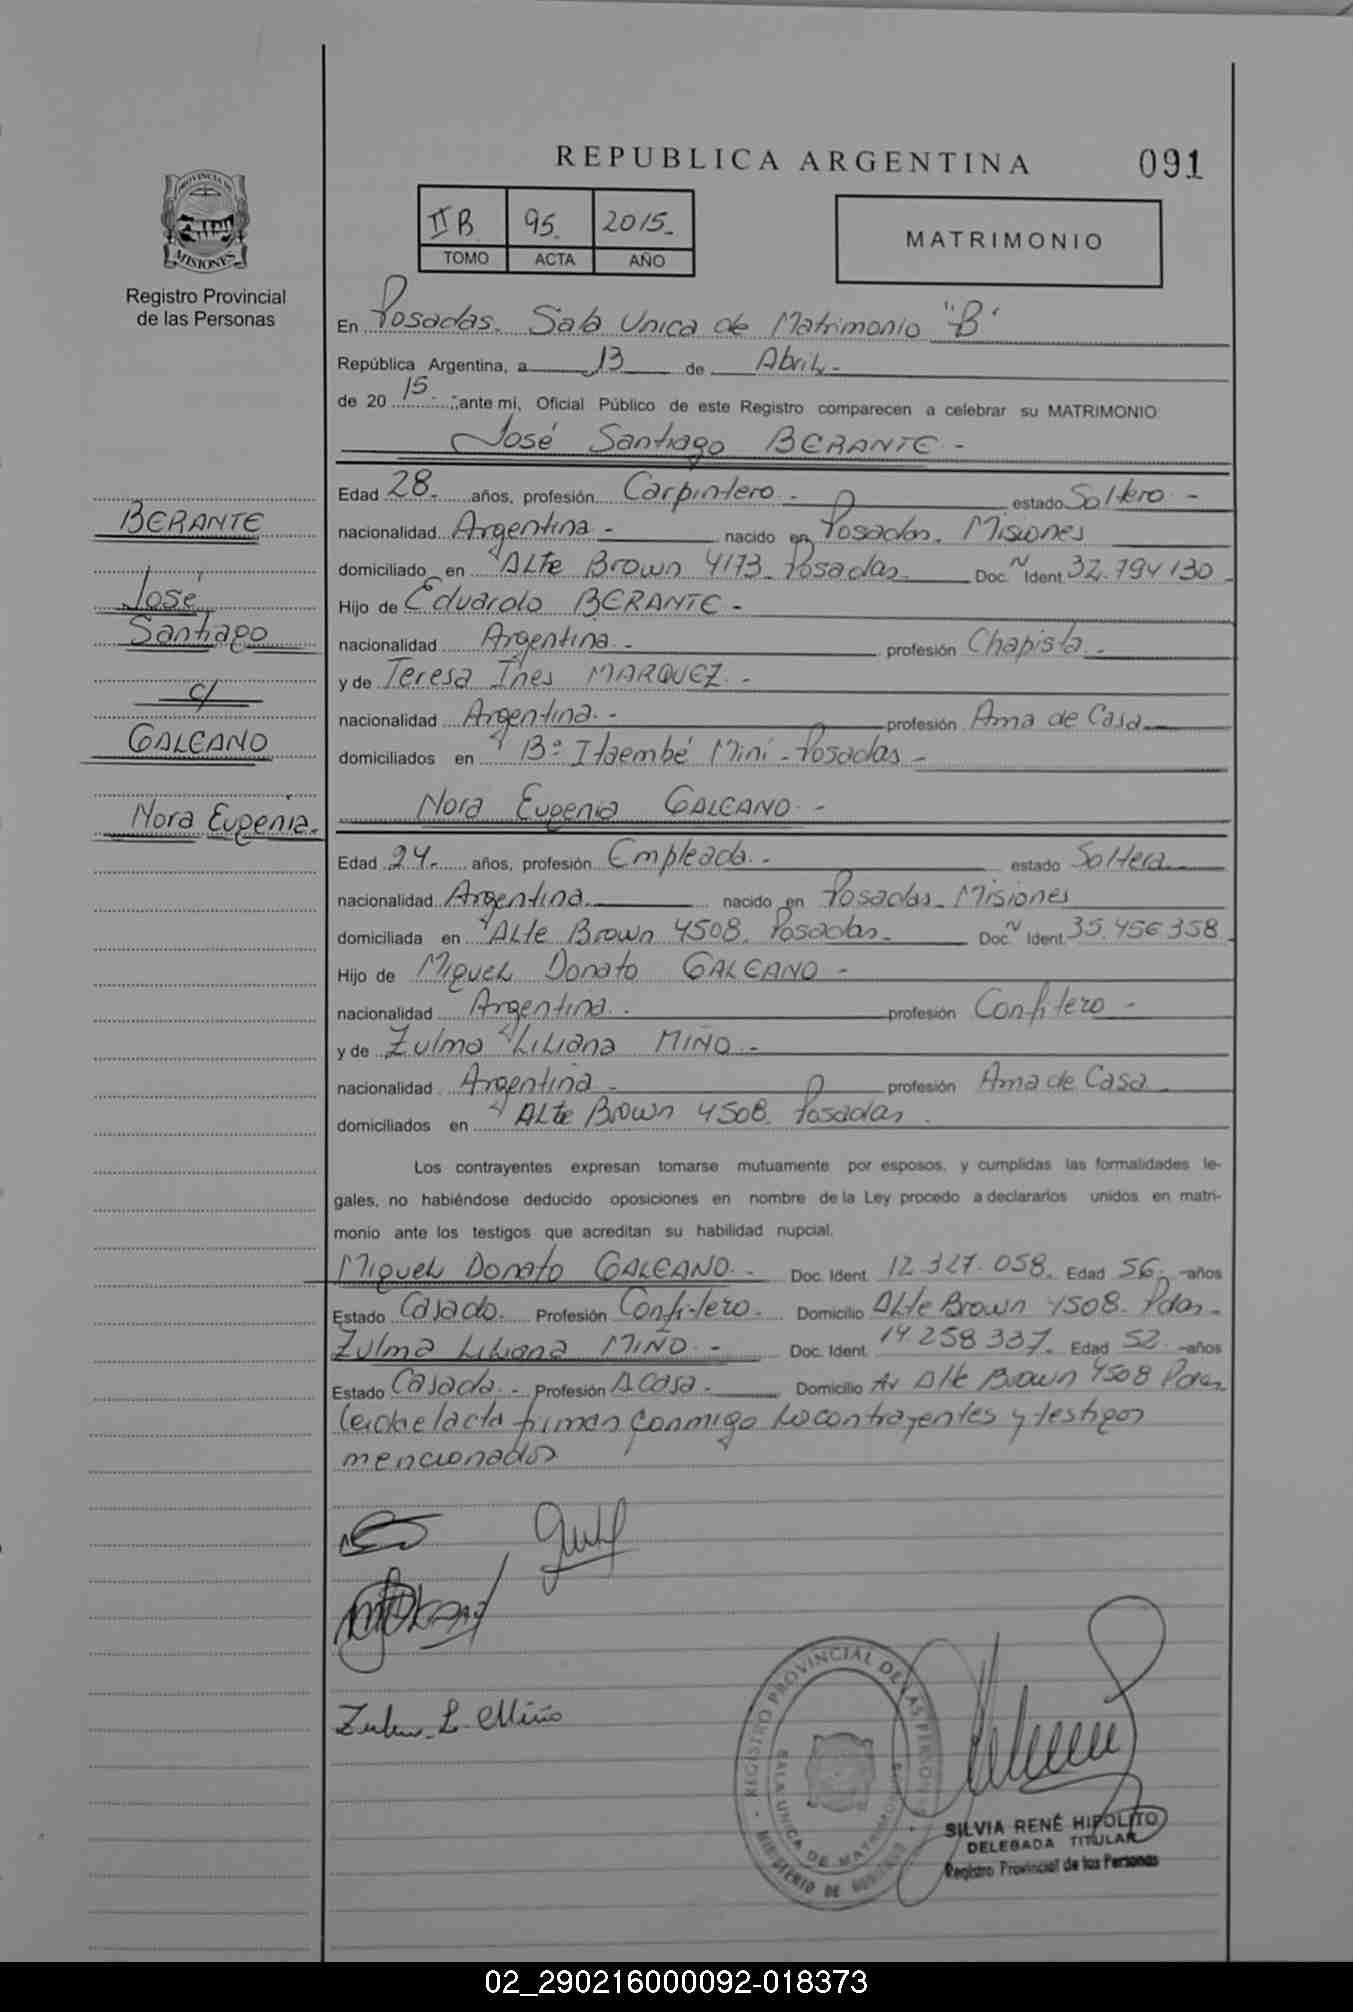 REPUBLICA ARGENTINA 091
PROVINCIA DE
MISIONES
Registro Provincial
de las Personas
II B 95. 2015.
TOMO ACTA AÑO
MATRIMONIO
En Posadas. Sala Unica de Matrimonio "B"
República Argentina, a 13 de Abril.-
de 20 15 ante mi, Oficial Público de este Registro comparecen a celebrar su MATRIMONIO
José Santiago BERANTE -
Edad 28.- años, profesión Carpintero - estado Soltero -
BERANTE
nacionalidad Argentina - nacido en Posadas. Misiones
domiciliado en Alte Brown 4173 Posadas Doc. N Ident. 32.794130
José
Hijo de Eduardo BERANTE -
Santiago
nacionalidad Argentina.- profesión Chapista.-
y de Teresa Ines MARQUEZ.-
c/
nacionalidad Argentina.- profesión Ama de Casa
GALEANO
domiciliados en Bº Itaembé Mini - Posadas -
Nora Eugenia.
Nora Eugenia GALEANO.-
Edad 24.- años, profesión Empleada.- estado Soltera
nacionalidad Argentina nacido en Posadas. Misiones
domiciliada en Alte Brown 4508. Posadas. Doc. N Ident. 35.456 358
Hijo de Miguel Donato GALEANO -
nacionalidad Argentina.- profesión Confitero -
y de Zulma Liliana MIÑO.-
nacionalidad Argentina - profesión Ama de Casa
domiciliados en Alte Brown 4508. Posadas.
Los contrayentes expresan tomarse mutuamente por esposos, y cumplidas las formalidades le-
gales, no habiéndose deducido oposiciones en nombre de la Ley procedo a declararlos unidos en matri-
monio ante los testigos que acreditan su habilidad nupcial.
Miguel Donato GALEANO.- Doc. Ident. 12.327.058. Edad 56.- años
Estado Casado. Profesión Confitero. Domicilio Alte Brown 4508. Pdas.-
Zulma Liliana MIÑO.- Doc. Ident. 14 258 337. Edad 52 - años
Estado Casada.- Profesión A Casa. Domicilio Av Alte Brown 4508 Pdas
Leida el acta firman conmigo los contrayentes y testigos
mencionados
Zulma L. Miño
REGISTRO PROVINCIAL DE LAS PERSONAS
SALA UNICA DE MATRIMONIOS
MINISTERIO DE GOBIERNO
SILVIA RENÉ HIPOLITO
DELEGADA TITULAR
Registro Provincial de las Personas
02_290216000092-018373